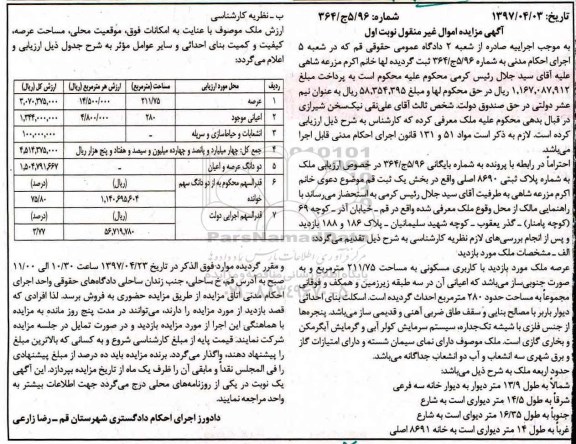 تاریخ: ۱۳۹۷/۰۴/۰۳
شماره: ۳۶۴/ج۵/۹۶
آگهی مزایده اموال غیر منقول نوبت اول
به موجب اجراییه صادره از شعبه ۲ دادگاه عمومی حقوقی قم که در شعبه ۵
اجرای احکام مدنی به شماره ۳۶۴/ج۵/۹۶ ثبت گردیده لها خانم اکرم مزرعه شاهی
علیه آقای سید جلال رئیس کرمی محکوم علیه محکوم است به پرداخت مبلغ
۱,۱۶۷,۰۸۷,۹۱۲ ریال در حق محکوم لها و مبلغ ۵۸,۳۵۴,۳۹۵ ریال به عنوان نیم
عشر دولتی در حق صندوق دولت. شخص ثالث آقای علی‌نقی نیک‌سخن شیرازی
در قبال بدهی محکوم علیه ملک معرفی کرده که کارشناس به شرح ذیل ارزیابی
کرده است. لازم به ذکر است مواد ۵۱ و ۱۳۱ قانون اجرای احکام مدنی قابل اجرا
می‌باشد.
احتراماً در رابطه با پرونده به شماره بایگانی ۳۶۴/ج۵/۹۶ در خصوص ارزیابی ملک
به شماره پلاک ثبتی ۸۶۹۰ اصلی واقع در بخش یک ثبت قم موضوع دعوی خانم
اکرم مزرعه شاهی به طرفیت آقای سید جلال رئیس کرمی به استحضار می‌رساند با
راهنمایی مالک از محل وقوع ملک معرفی شده واقع در قم - خیابان آذر - کوچه ۶۹
(کوچه پامنار) - گذر یعقوب - کوچه شهید سلیمانیان - پلاک ۱۸۶ و ۱۸۸ بازدید
و پس از انجام بررسی‌های لازم نظریه کارشناسی به شرح ذیل تقدیم می‌گردد:
الف - مشخصات ملک مورد بازدید
عرصه ملک مورد بازدید با کاربری مسکونی به مساحت ۲۱۱/۷۵ مترمربع و به
صورت جنوبی‌ساز می‌باشد که اعیانی آن در سه طبقه زیرزمین و همکف و فوقانی
مجموعاً به مساحت حدود ۲۸۰ مترمربع احداث گردیده است. اسکلت بنای احداثی
دیوار باربر با مصالح بنایی و سقف طاق ضربی آهنی و قدیمی ساز می‌باشد. پنجره‌ها
از جنس فلزی با شیشه تک‌جداره، سیستم سرمایش کولر آبی و گرمایش آبگرمکن
و بخاری گازی است. ملک موصوف دارای نمای سیمان شسته و دارای امتیازات گاز
و برق شهری سه انشعاب و آب دو انشعاب جداگانه می‌باشد.
حدود اربعه ملک به شرح ذیل می‌باشد:
شمالاً به طول ۱۳/۹ متر دیوار به دیوار خانه سه فرعی
شرقاً به طول ۱۴/۵ متر دیواری است به شارع
جنوباً به طول ۱۶/۳۵ متر دیوای است به شارع
غرباً به طول ۱۴ متر دیواری است به خانه ۸۶۹۱ اصلی
ب - نظریه کارشناسی
ارزش ملک موصوف با عنایت به امکانات فوق، موقعیت محلی، مساحت عرصه،
کیفیت و کمیت بنای احداثی و سایر عوامل مؤثر به شرح جدول ذیل ارزیابی و
اعلام می‌گردد:
ردیف محل مورد ارزیابی مساحت (مترمربع) ارزش هر مترمربع (ریال) ارزش کل (ریال)
۱ عرصه ۲۱۱/۷۵ ۱۴/۵۰۰/۰۰۰ ۳,۰۷۰,۳۷۵,۰۰۰
۲ اعیانی موجود ۲۸۰ ۴/۸۰۰/۰۰۰ ۱,۳۴۴,۰۰۰,۰۰۰
۳ انشعابات و حیاط‌سازی و سرپله - ۱۰۰,۰۰۰,۰۰۰
۴ جمع کل: چهار میلیارد و پانصد و چهارده میلیون و سیصد و هفتاد و پنج هزار ریال ۴,۵۱۴,۳۷۵,۰۰۰
۵ دو دانگ عرصه و اعیان - ۱,۵۰۴,۷۹۱,۶۶۷
۶ قدرالسهم محکوم به از دو دانگ سهم خوانده (ریال) (درصد)
۱,۱۴۰,۶۹۵,۶۰۴ ۷۵/۸۰
۷ قدرالسهم اجرایی دولت (ریال) (درصد)
۵۶,۷۱۹,۷۸۰ ۳/۷۷
و مقرر گردیده موارد فوق الذکر در تاریخ ۱۳۹۷/۰۴/۲۳ ساعت ۱۰/۳۰ الی ۱۱/۰۰
صبح به آدرس قم، خ ساحلی، جنب زندان ساحلی دادگاه‌های حقوقی واحد اجرای
احکام مدنی اتاق مزایده از طریق مزایده حضوری به فروش برسد. لذا افرادی که
قصد بازدید از مورد مزایده را دارند، می‌توانند در مدت پنج روز مانده به مزایده
با هماهنگی این اجرا از مورد مزایده بازدید و در صورت تمایل در جلسه مزایده
شرکت نمایند. قیمت پایه از مبلغ کارشناسی شروع و به کسانی که بالاترین مبلغ
را پیشنهاد دهند، واگذار می‌گردد. برنده مزایده باید ده درصد از مبلغ پیشنهادی
را فی المجلس نقداً و مابقی آن را ظرف یک ماه از تاریخ مزایده بپردازد. این آگهی
یک نوبت در یکی از روزنامه‌های محلی درج می‌گردد جهت اطلاعات بیشتر به
واحد مراجعه نمایید.
دادورز اجرای احکام دادگستری شهرستان قم - رضا زارعی